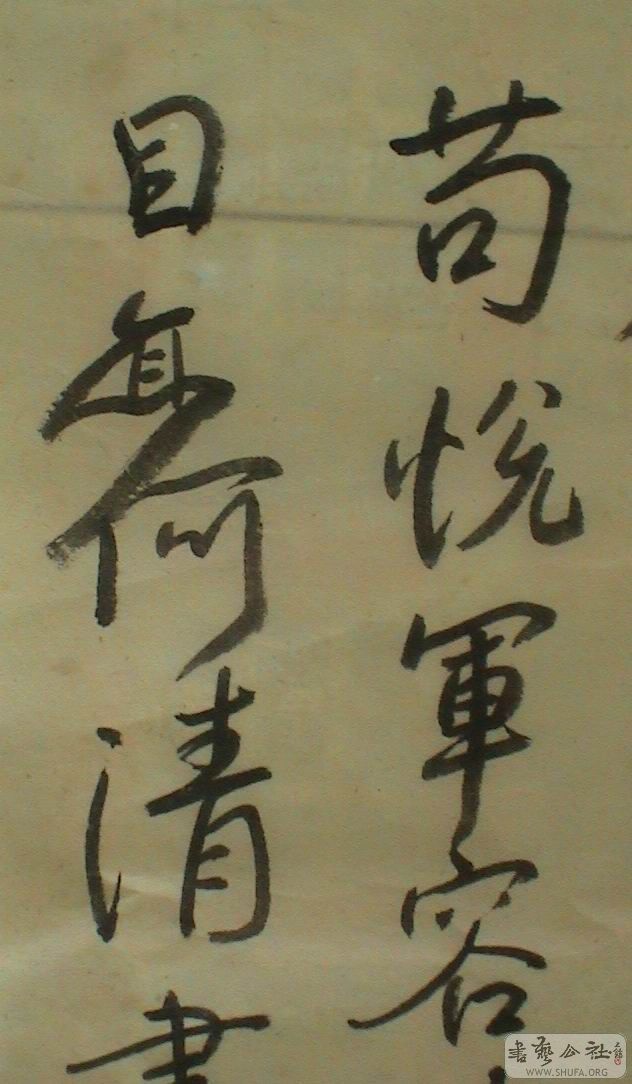 苟悦軍容
目何清
書藝公社
WWW.SHUFA.ORG